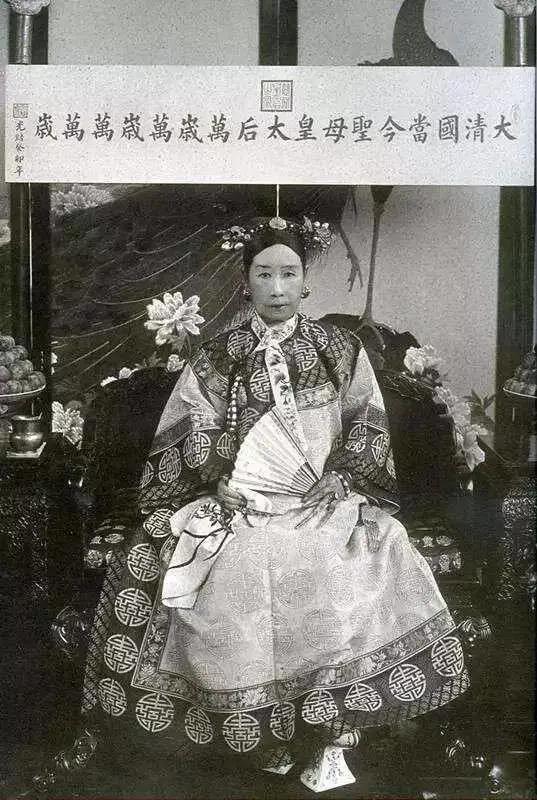 大清國當今聖母皇太后萬歲萬歲萬萬歲
光緒癸卯年